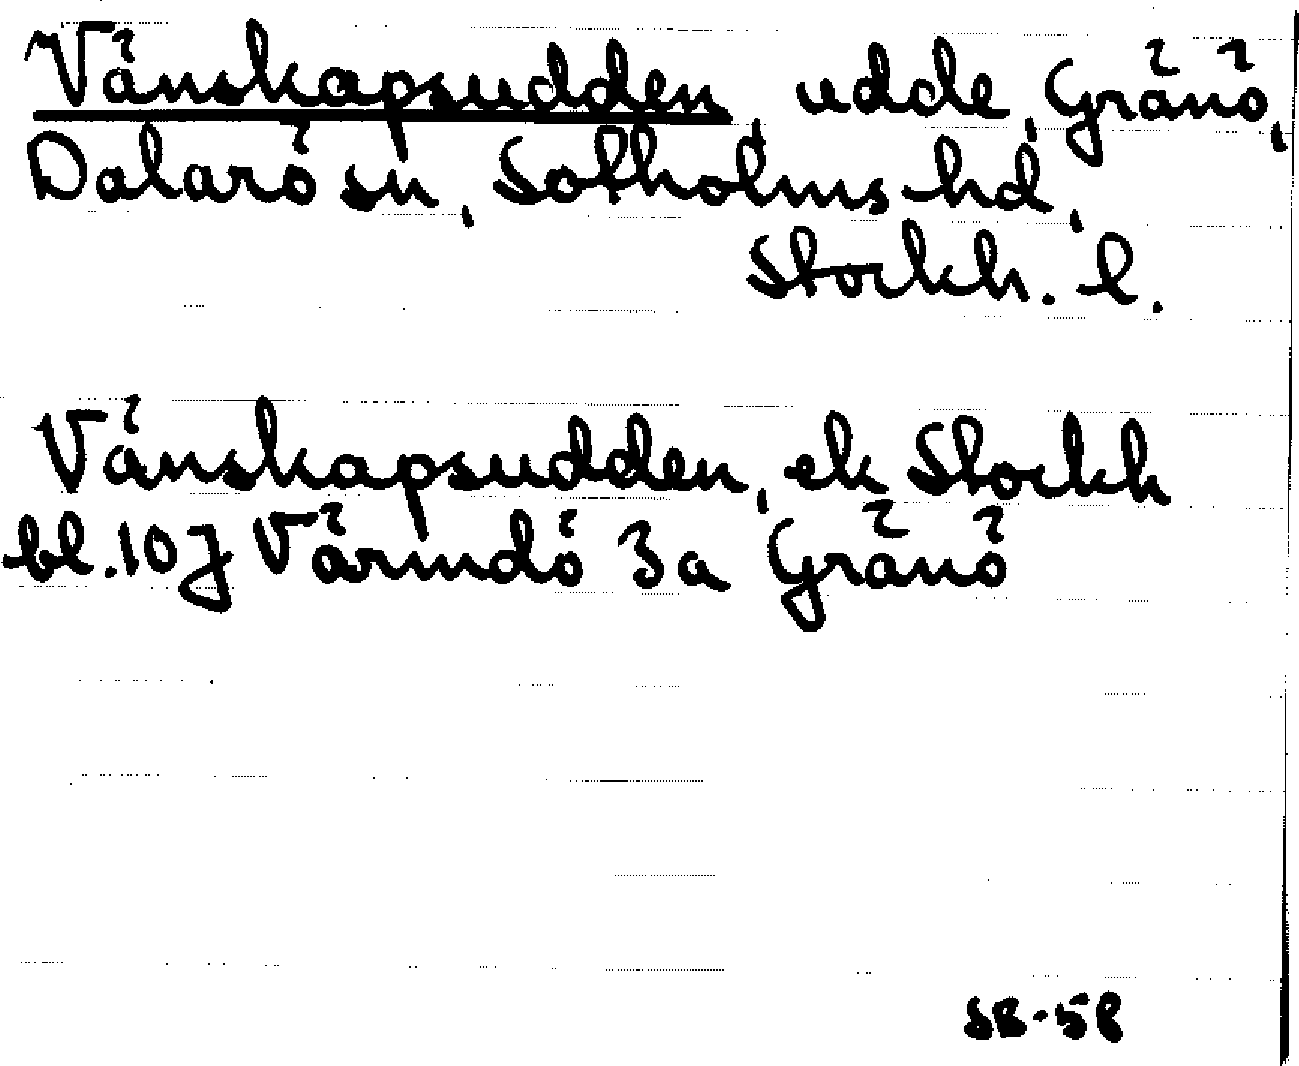 Vänskapsudden, udde, Gränö,
Dalarö sn, Sotholms hd,
Stockh. l.
Vänskapsudden, ek Stockh
bl. 107 Värmdö 3a Gränö
SB-58